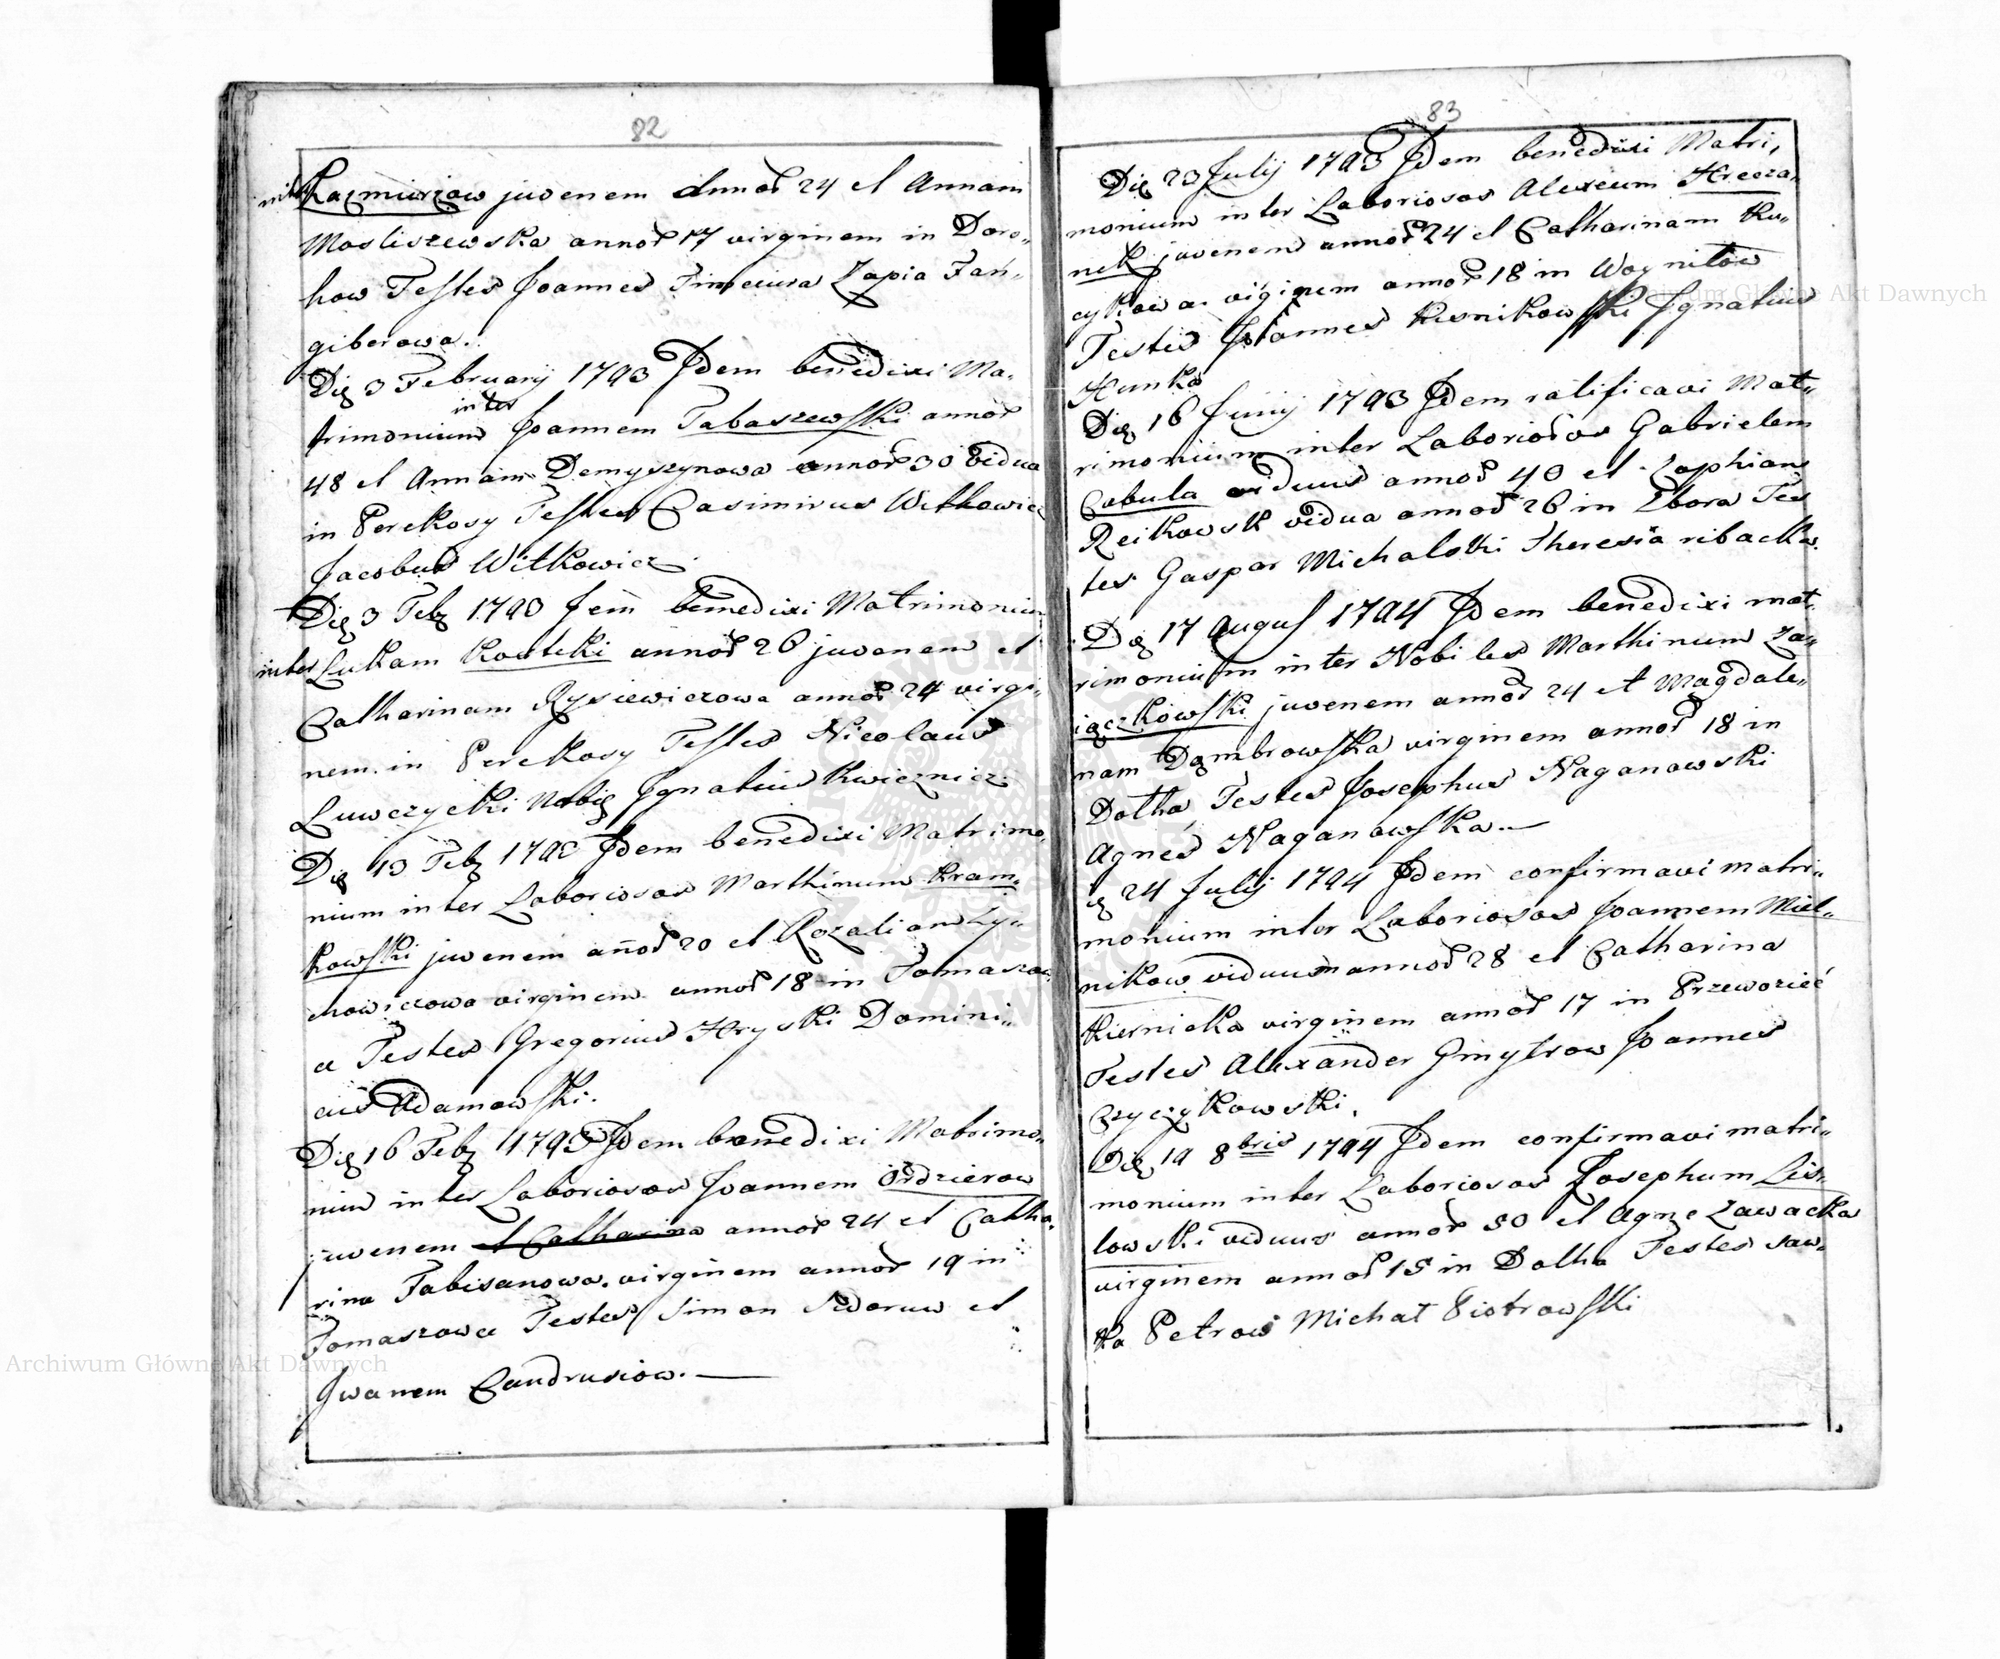 82
inter Kazmiurzow juvenem annor 24 et Annam
Mostiszewska annor 17 virginem in Doro„
how Testes Joannes Timciura Zopia Fan„
giberowa.
Die 3 February 1793 Idem benedixi Ma„
trimonium inter Joannem Tabaszewski annor
48 et Annam Demyszynowa annor 30 vidua
in Perekosy Testes Casimirus Witkowicz
Jacobus Witkowicz.
Die 3 Feb 1793 Idem benedixi Matrimonium
inter Lukam Kostcki annor 26 juvenem et
Catharinam Rysiewiczowa annor 24 virgi„
nem in Perekosy Testes Nicolaus
Luwczycki Nobis Ignatius Kwicznicz.
Die 13 Feb 1793 Idem benedixi Matrimo„
nium inter Laboriosos Marthinum Kram„
kowski juvenem añor 20 et Rozaliam Zy„
chowiczowa virginem annor 18 in Tomaszow„
a Testes Gregorius Hryski Domini„
cus Adamowski.
Die 16 Feb 1793 Idem benedixi Matrimo„
nium inter Laboriosos Joannem Ordzierow
juvenem et Catharina annor 24 et Catha„
rina Tabisanowa virginem annor 19 in
Tomaszowce Testes Simon Sidoruw et
Iwanem Candrusiow.
83
Die 23 July 1793 Idem benedixi Matri„
monium inter Laboriosos Alexeum Hreoza„
nek juvenem annor 24 et Catharinam Ku„
cykowa viginem annor 18 in Woynitow
Testes Joannes Kusnikowski Ignatius
Hunka
Die 16 Junij 1793 Idem ratificavi Mat„
rimonium inter Laboriosos Gabrielem
Cabula viduus annor 40 et Zophiam
Reikowsk vidua annor 26 in Zbora Tes
tes Gaspar Michalski Theresia ribacka.
Die 17 August 1794 Idem benedixi mat„
rimonium inter Nobiles Marthinum Za„
iączkowski juvenem annor 24 et Magdale„
nam Dąmbrowska virginem annor 18 in
Dotha Testes Josephus Naganowski
Agnes Naganowska.
24 July 1794 Idem confirmavi matri„
monium inter Laboriosos Joannem Miel„
nikow viduum annor 28 et Catharina
Kiernicka virginem annor 17 in Przewoziec
Testes Alexander Gmytrow Joannes
Czyczykowski.
Die 19 8bris 1794 Idem confirmavi matri„
monium inter Laboriosos Josephum Lis„
lowski viduus annor 50 et Agne Zawacka
virginem annor 15 in Dotha Testes Saw„
ka Petrow Michał Piotrowski
Archiwum Główne Akt Dawnych
Archiwum Główne Akt Dawnych